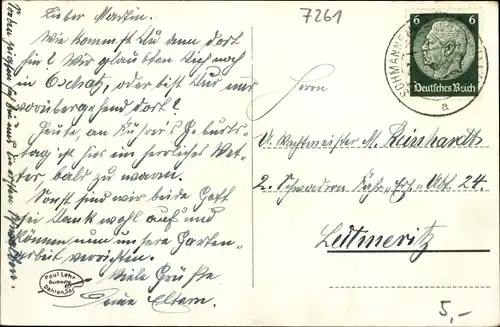 7261
Lieber Martin.
Wie kommst Du denn dort
hin? Wir glaubten Dich noch
in Oschatz, oder bist Du nur
vorübergehend dort?
Heute, an Führers Geburts-
tag ist hier ein herrliches Wet-
ter, bald zu warm.
Sonst sind wir beide Gott
sei Dank wohl auf und
können nun unsere Garten-
arbeit verrichten.
Viele Grüße
Deine Eltern.
Paul Lehr
Buchhdlg.
Dahlen, Sa.
6 6
Deutsches Reich
a
Herrn
U. Wachtmeister M. Reinhardt
2. Schwadron Fahr- Ers. Abt. 24.
Leitmeritz
5,-